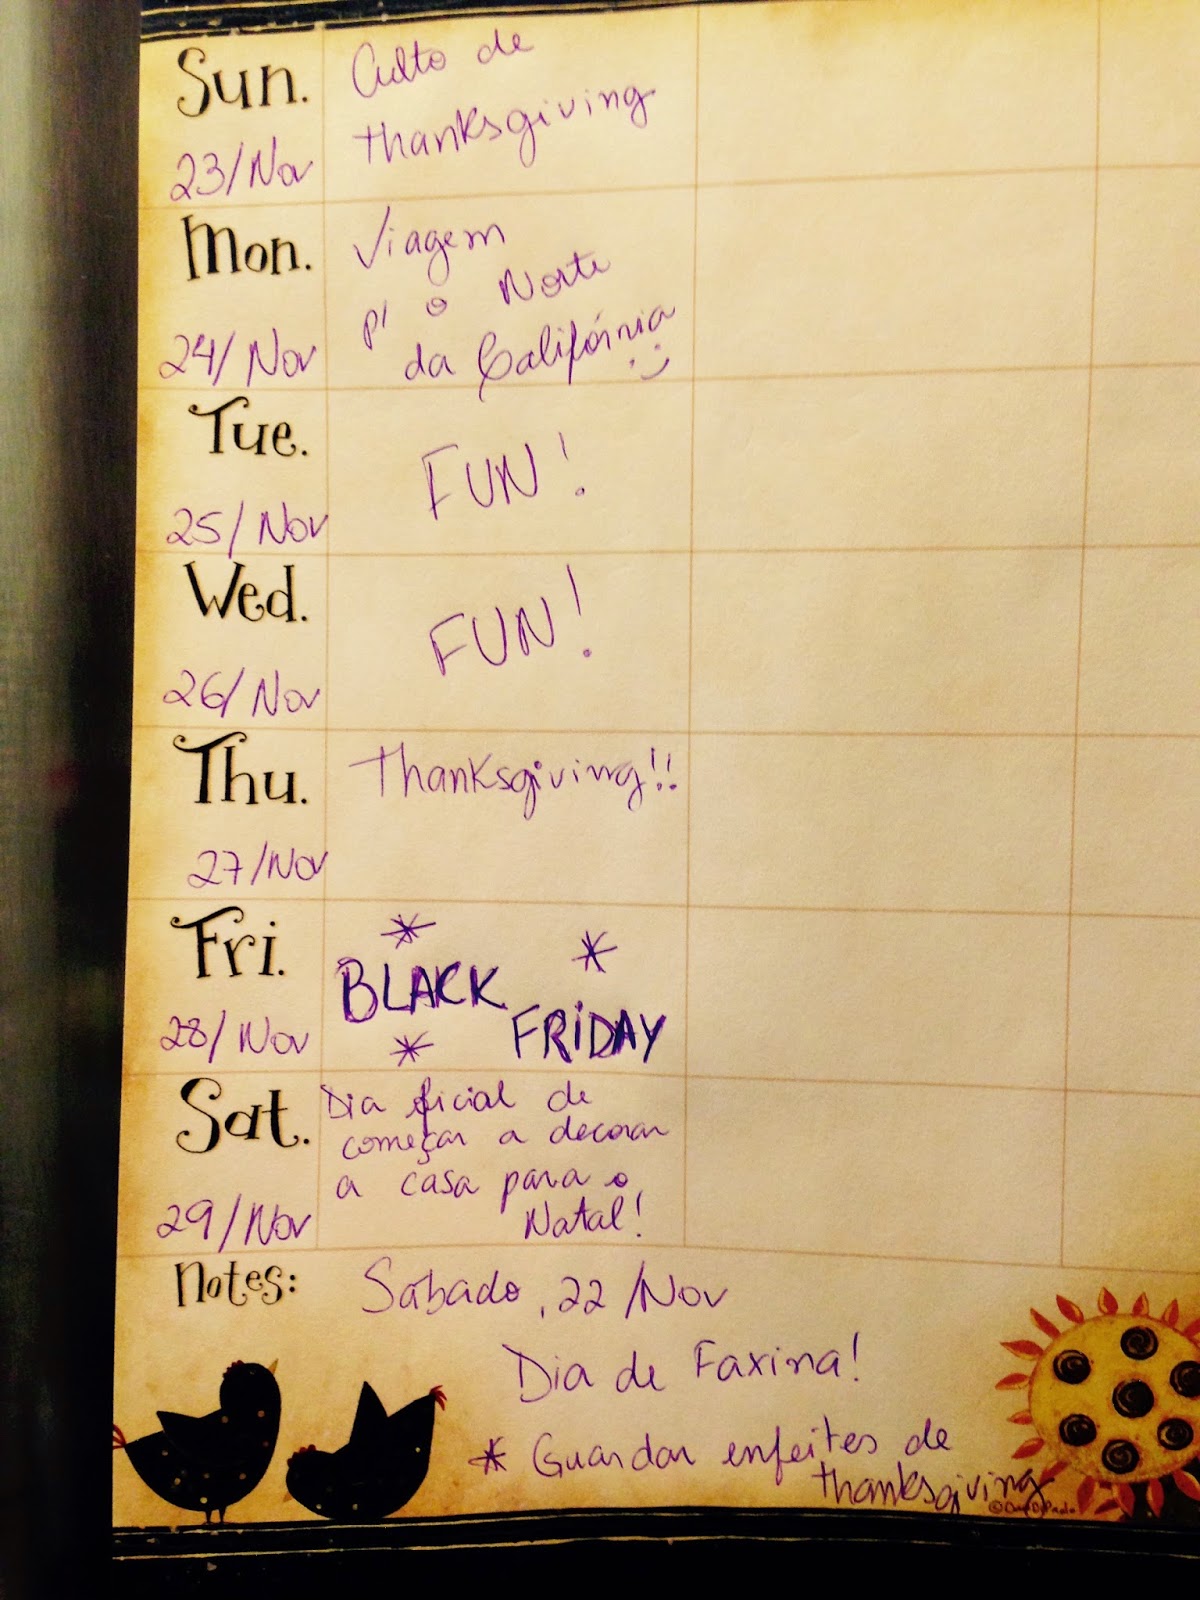 Sun.
Culto de
thanksgiving
23/Nov
Mon.
Viagem
p/ o Norte
da Califórnia
24/Nov
Tue.
FUN!
25/Nov
Wed.
FUN!
26/Nov
Thu.
Thanksgiving!!
27/Nov
Fri.
BLACK
FRIDAY
28/Nov
Sat.
Dia oficial de
começar a decorar
a casa para o
Natal!
29/Nov
Notes:
Sábado, 22/Nov
Dia de Faxina!
* Guardar enfeites de
thanksgiving